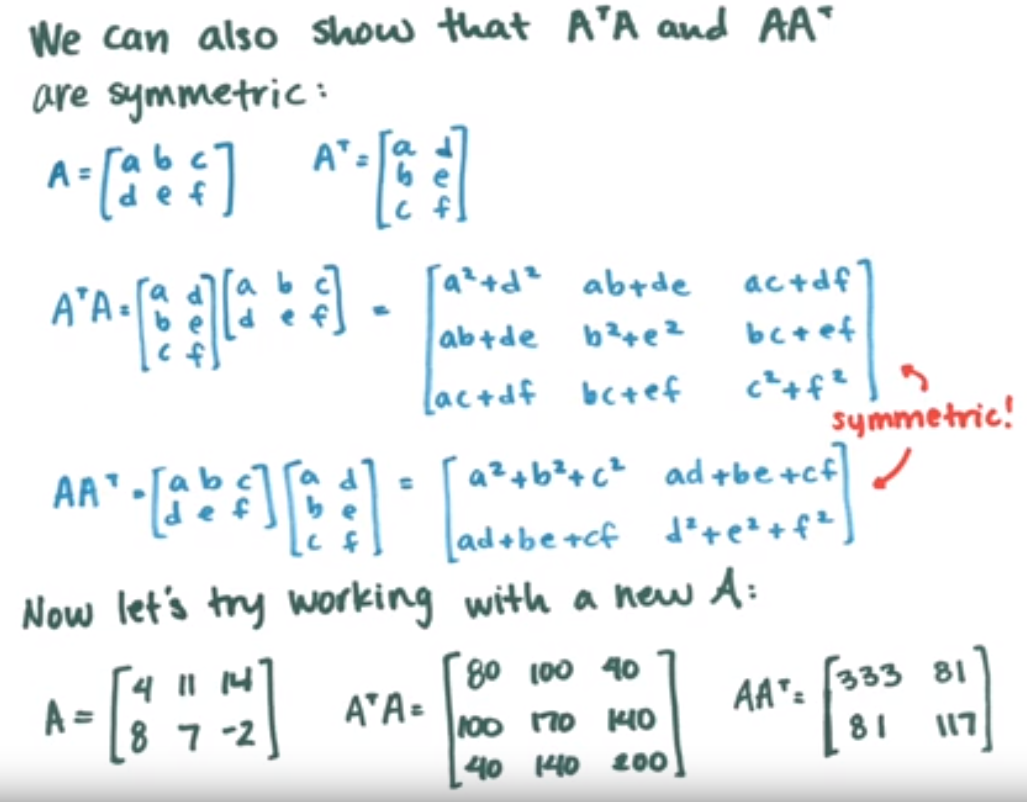 We can also show that AᵀA and AAᵀ
are symmetric:
A = [a b c; d e f] Aᵀ = [a d; b e; c f]
AᵀA = [a d; b e; c f] [a b c; d e f] = [a²+d² ab+de ac+df; ab+de b²+e² bc+ef; ac+df bc+ef c²+f²]
symmetric!
AAᵀ = [a b c; d e f] [a d; b e; c f] = [a²+b²+c² ad+be+cf; ad+be+cf d²+e²+f²]
Now let's try working with a new A:
A = [4 11 14; 8 7 -2] AᵀA = [80 100 40; 100 170 140; 40 140 200] AAᵀ = [333 81; 81 117]